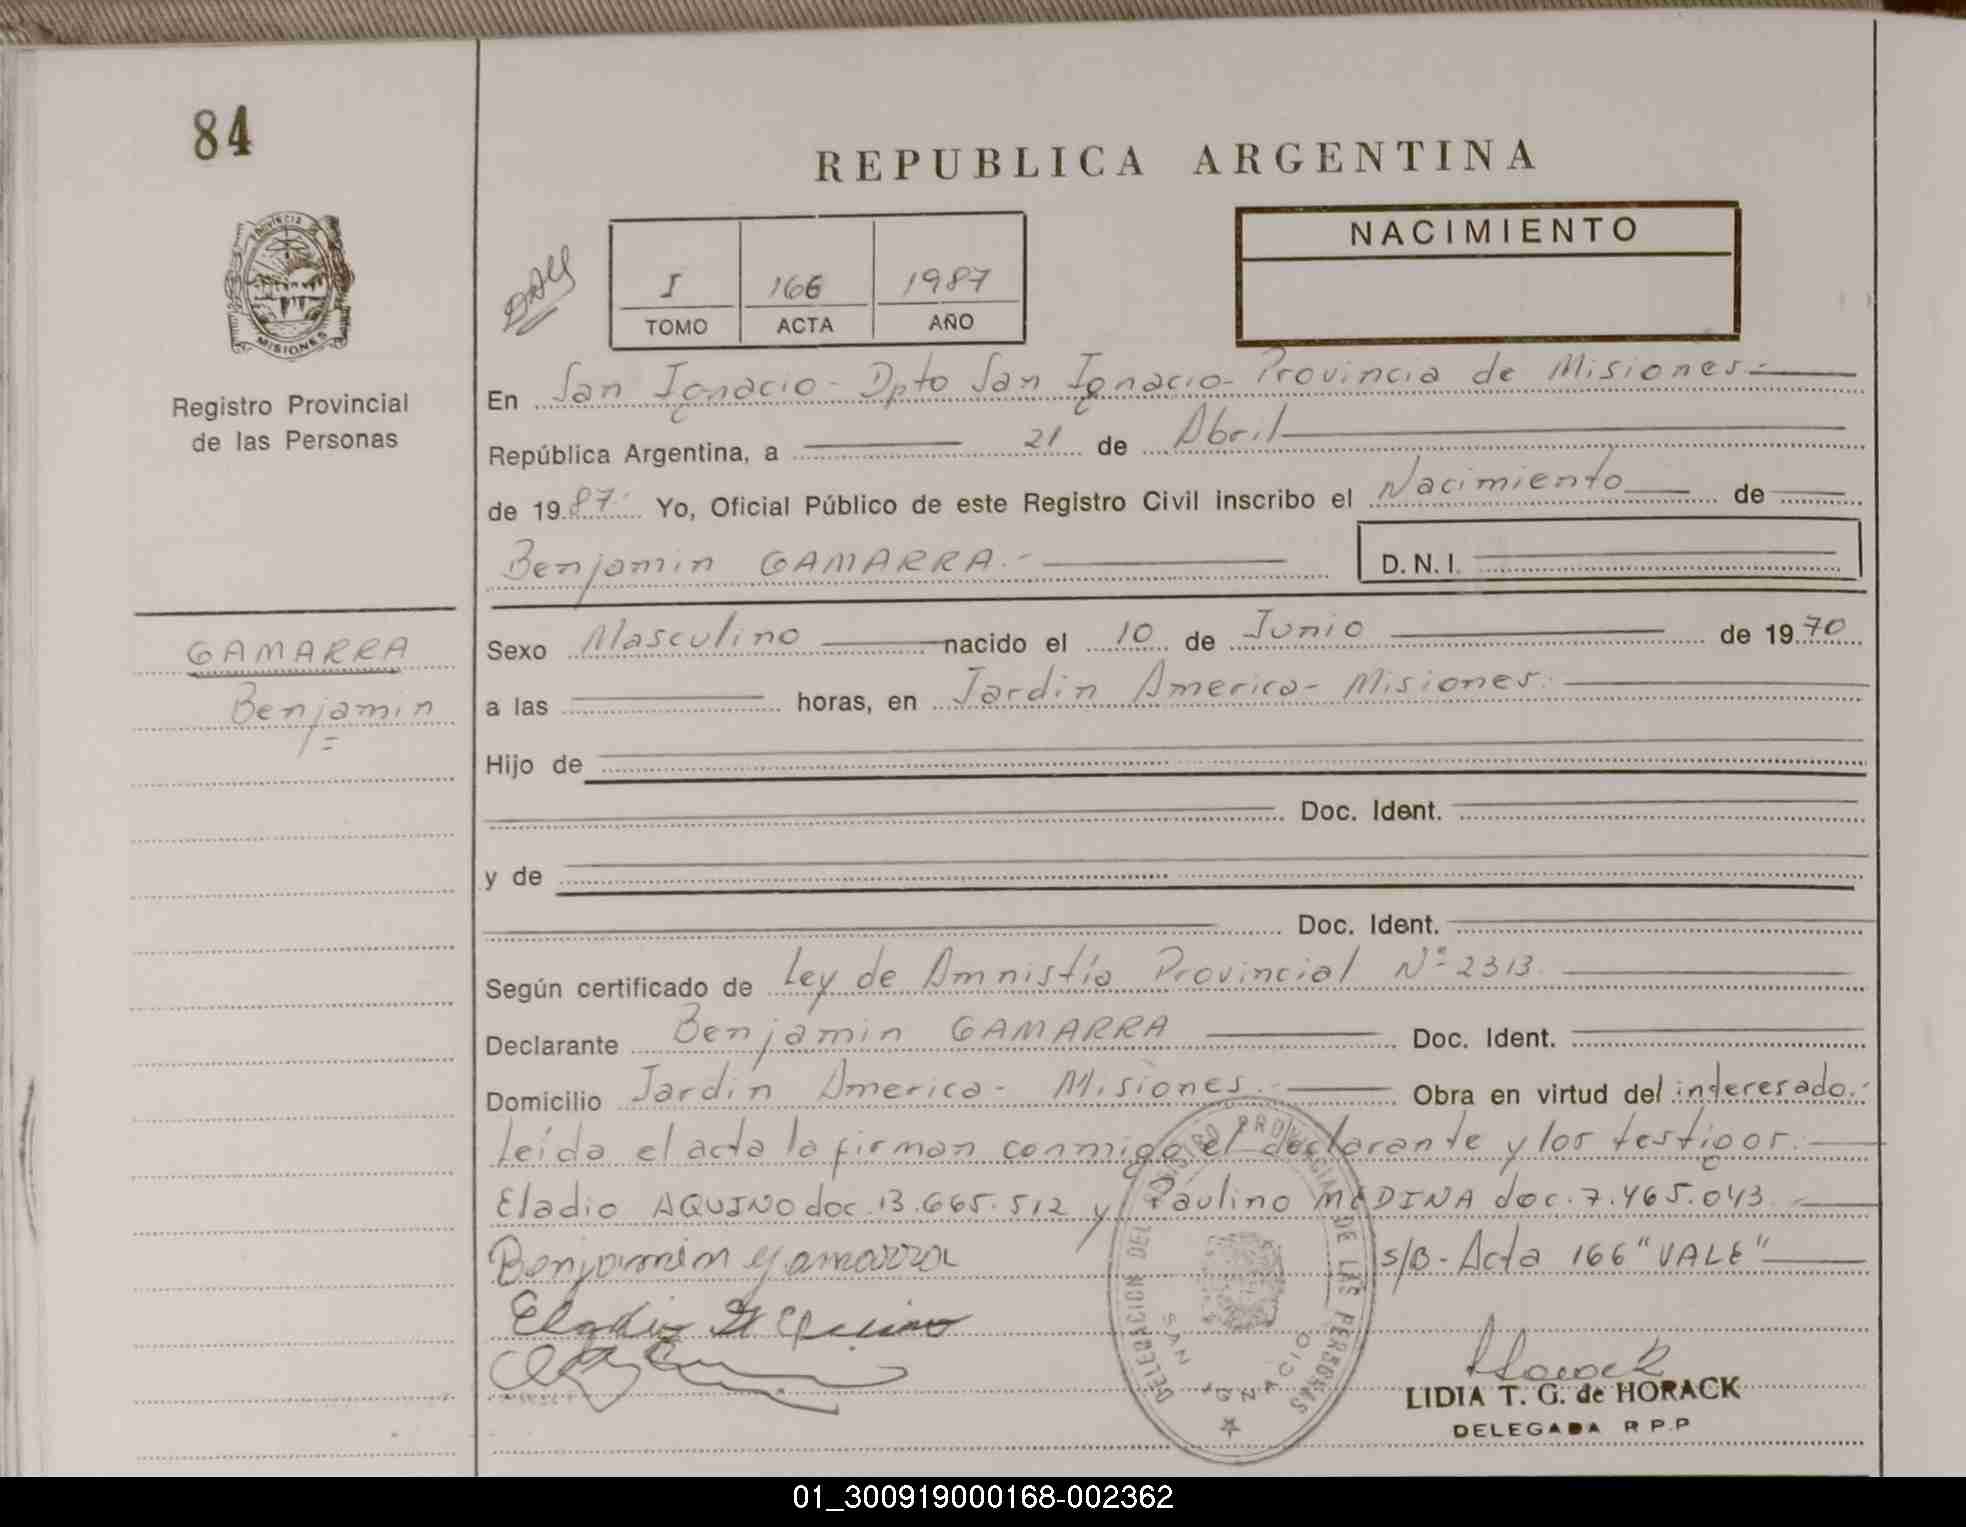 84
REPUBLICA ARGENTINA
PROVINCIA
MISIONES
Registro Provincial
de las Personas
I 166 1987
TOMO ACTA AÑO
NACIMIENTO
En San Ignacio - Dpto San Ignacio - Provincia de Misiones.-
República Argentina, a 21 de Abril
de 1987. Yo, Oficial Público de este Registro Civil inscribo el Nacimiento de
Benjamin GAMARRA.-
D.N.I.
GAMARRA
Benjamin
Sexo Masculino nacido el 10 de Junio de 1970
a las horas, en Jardin America - Misiones.
Hijo de
Doc. Ident.
y de
Doc. Ident.
Según certificado de Ley de Amnistía Provincial Nº 2313.
Declarante Benjamin GAMARRA Doc. Ident.
Domicilio Jardin America - Misiones.- Obra en virtud del interesado.-
Leída el acta la firman conmigo el declarante y los testigos.-
Eladio AQUINO doc. 13.665.512 y Paulino MEDINA doc. 7.465.043.
Benjamin Gamarra s/B - Acta 166 "VALE"
DELEGACION DEL REGISTRO PROVINCIAL DE LAS PERSONAS
SAN IGNACIO
Horack
LIDIA T. G. de HORACK
DELEGADA R.P.P
01_300919000168-002362